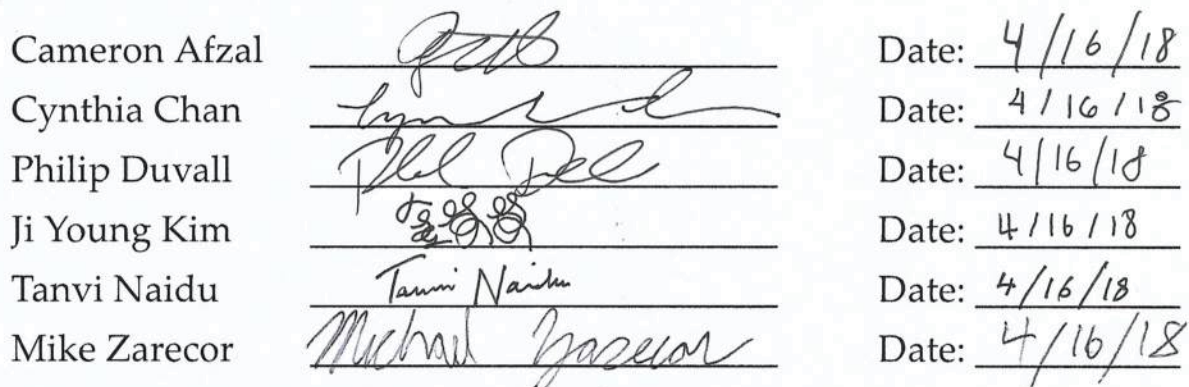 Cameron Afzal Date: 4/16/18
Cynthia Chan Date: 4/16/18
Philip Duvall Date: 4/16/18
Ji Young Kim Date: 4/16/18
Tanvi Naidu Tanvi Naidu Date: 4/16/18
Mike Zarecor Michael Zarecor Date: 4/16/18